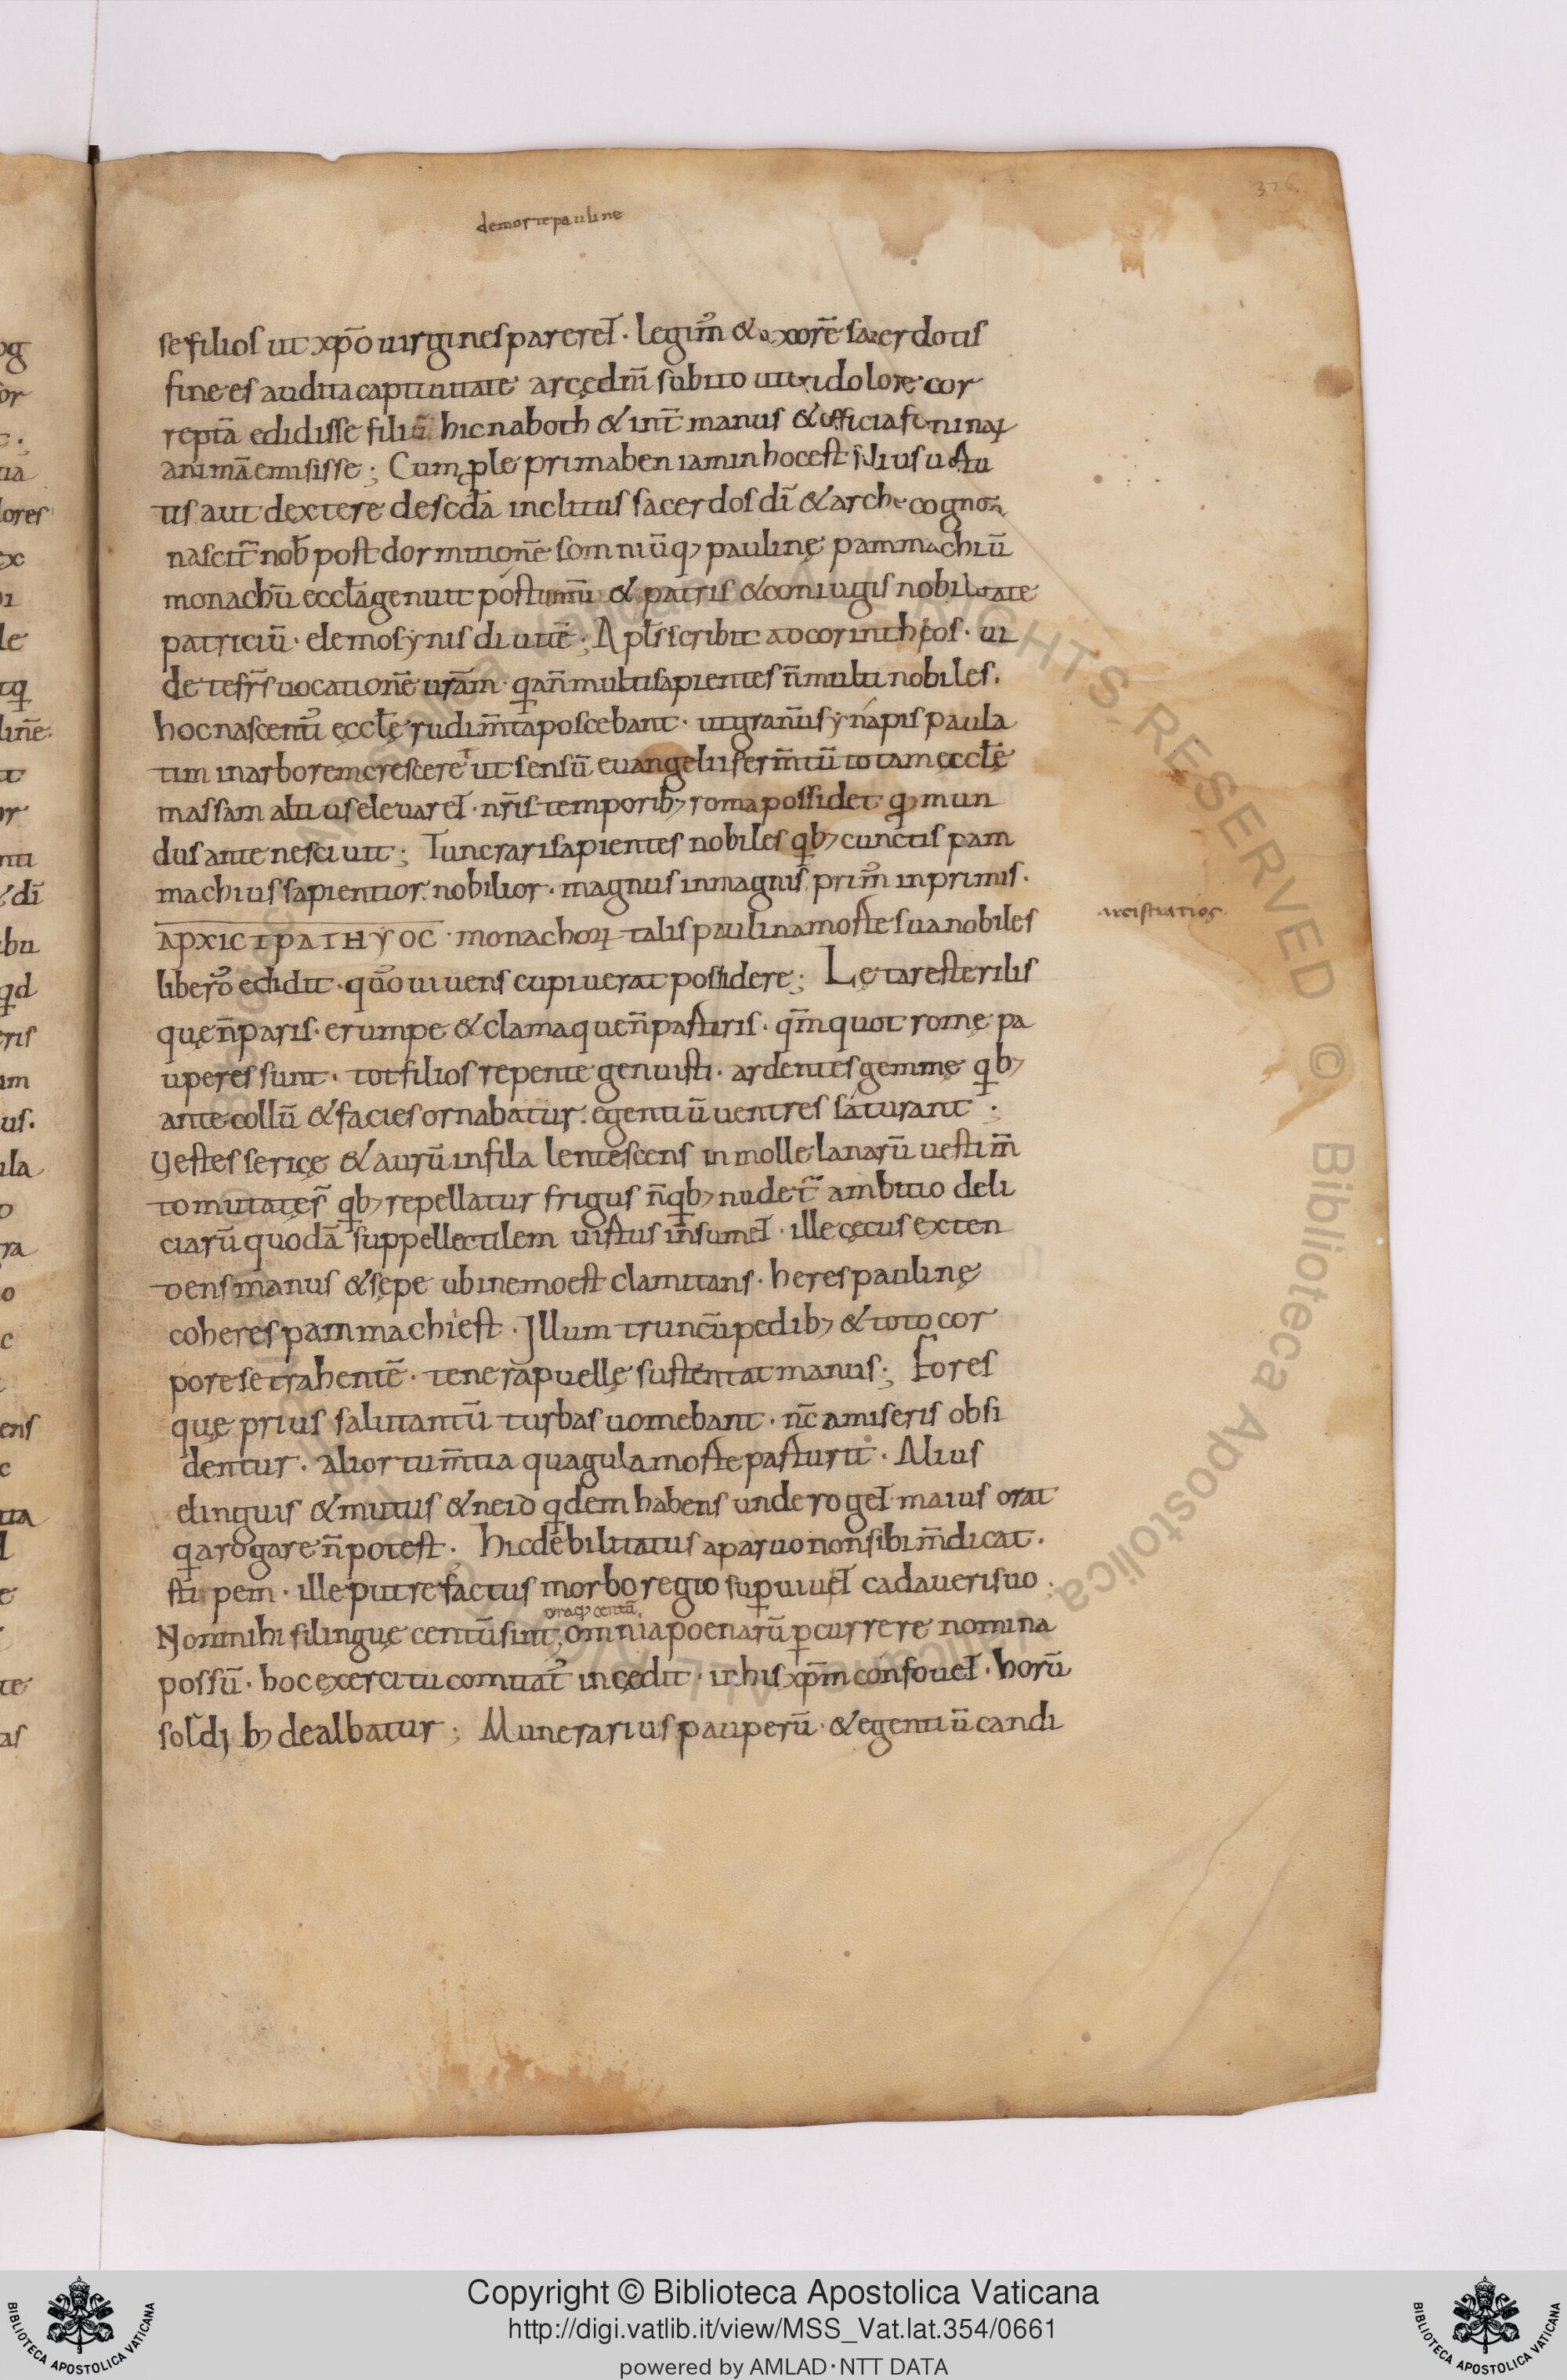 326
demortepauline
sefilios ut xp̄o uirginespareret̄ · legim᷒ & uxorē sacerdotis
finees audita captiuitate arcędn̄i subito uteridolore cor
reptā edidisse filiū hicnaboth & int̄ manus & officiafęninaꝝ
animāemisisse ; Cum ꝓle primabeniaminhocest filiusuirtu
tis aut dextere descd̄a inclitus sacerdos dī & arche cognom̄
nascit̄ nob̄ post dormitionē somniūqꝫ paulinę pammachiū
monachū eccl̄agenuit postumū & patris & coniugis nobilitate
patriciū · elemosynis diuitē ; Apl̄s scribit adcorintheos · ui
de tefr̄s uocationē urām · qꝛan̄multisapientes n̄multi nobiles ·
hocnascentiū eccl̄ę rudim̄taposcebant · utgranū synapis paula
tim inarboremcresceret̄ ut sensū euangeliiferm̄tū totam ęccl̄ę
massam alti uselevaret̄ · nr̄is temporibꝫ romapossidet qđ mun
dus ante nesciuit ; Tunc rarisapientes nobiles qꝫ cunctis pam
machius sapientior · nobilior · magnus inmagnis prim᷒ inprimis ·
ΑΡΧΙCΤΡΑΤΗΥΟC · monachoꝝ talis paulinamorte sua nobiles
libero᷒ edidit · quo᷒ uiuens cupiuerat possidere ; Lętaresterilis
quęn̄paris · erumpe & clamaquen̄parturis · qm̄ quot romę pa
uperes sunt · totfilios repente genuisti · ardentesgemmę qbꝫ
ante collū & facies ornabatur · egentiū uentres saturant ·
Vestes sericę & aurūinfila lentescens in molle lanarū uestim̄
tomutatęs̄ qbꝫ repellatur frigus n̄qbꝫ nudet̄ ambitio deli
ciarū quodā suppellectilem uirtus insumet̄ · ille cęcus exten
dens manus & sępe ubinemoest clamitans · heres paulinę
coheres pammachiest · Illum truncūpedibꝫ & toto cor
pore se trahentē · tenera puellę sustentat manus ; Fores
quę prius salutantū turbas uomebant · nc̄ amiseris obsi
dentur · aliortum̄tia quagulamorte parturit · Alius
elinguis & mutus & neid qdem habens unde roget̄ maius orat
qa rogare n̄potest · hicdebilitatus aparuo nonsibim̄dicat ·
stipem · ille putrefactus morbo regio suꝑuiuet̄ cadauerisuo ;
oraqꝫ centū
Nonmihi silingue centūsint omniapoenarū ꝑcurrere nomina
possū · hoc exercitu comitat᷒ incedit · in his xp̄m confouet̄ · horū
sordibꝫ dealbatur ; Munerarius pauperū · & egentiū candi
arcistratios
Copyright © Biblioteca Apostolica Vaticana
http://digi.vatlib.it/view/MSS_Vat.lat.354/0661
powered by AMLAD·NTT DATA
BIBLIOTECA APOSTOLICA VATICANA
BIBLIOTECA APOSTOLICA VATICANA